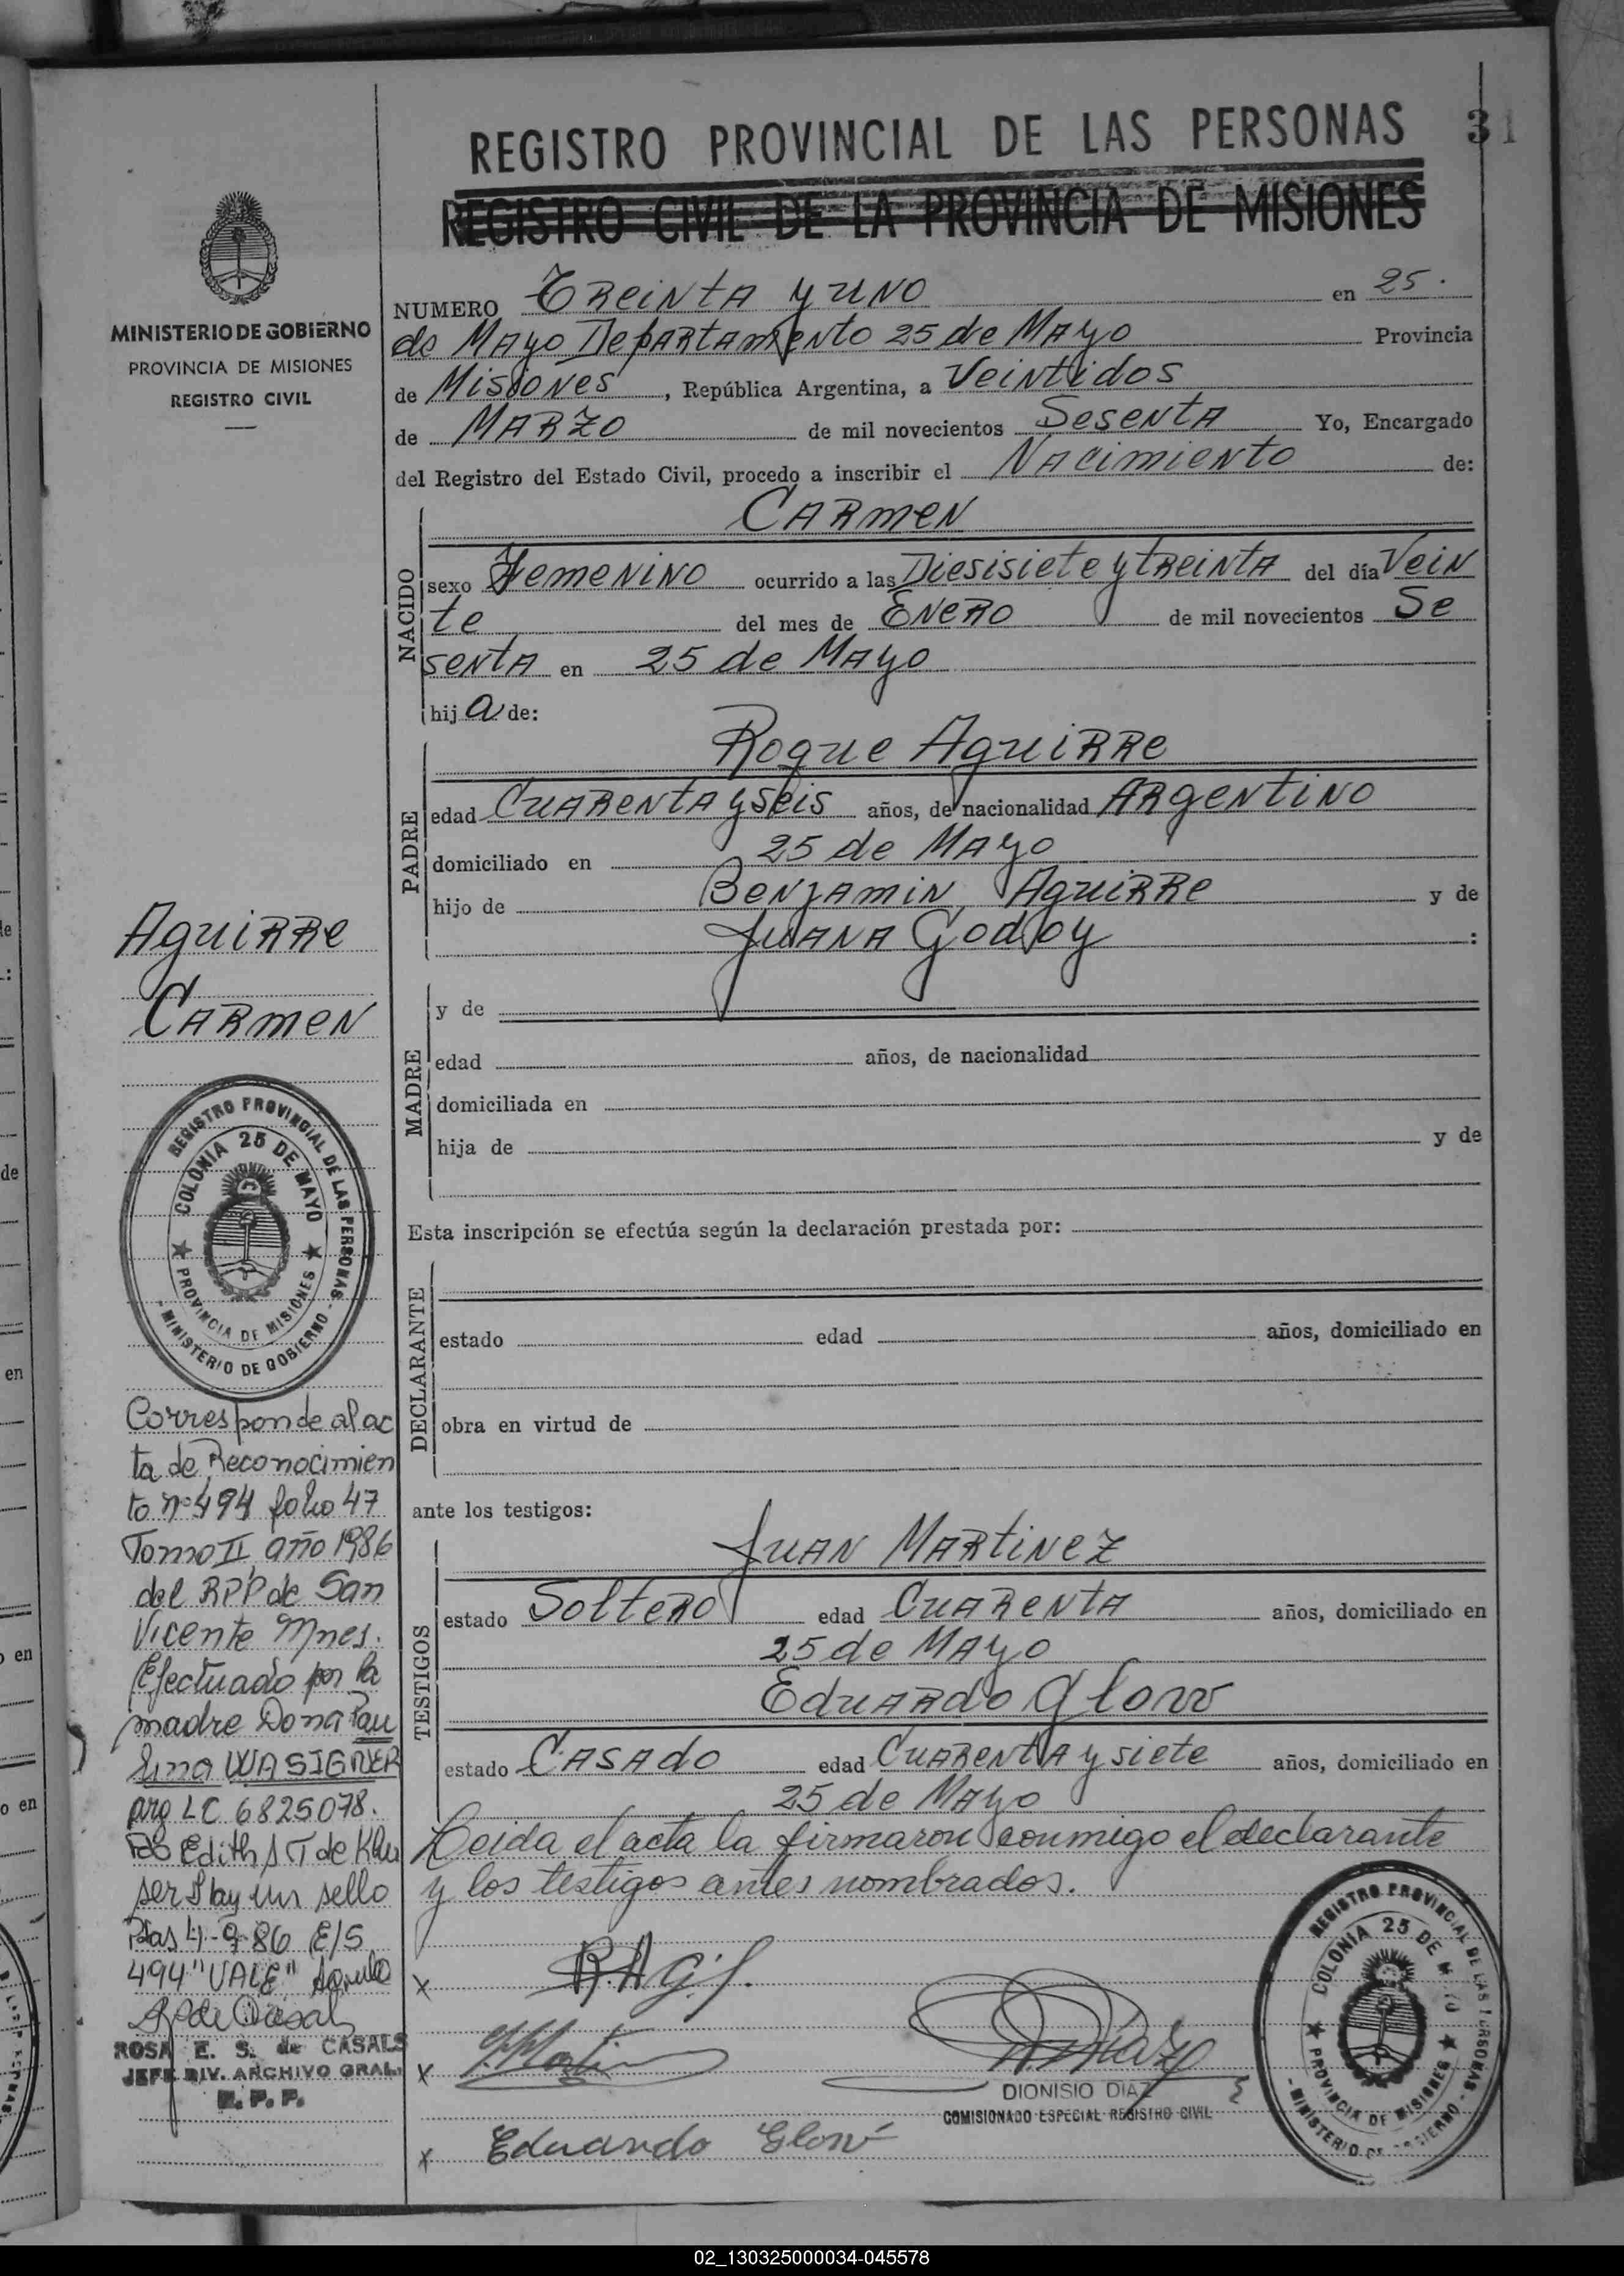 REGISTRO PROVINCIAL DE LAS PERSONAS
31
REGISTRO CIVIL DE LA PROVINCIA DE MISIONES
MINISTERIO DE GOBIERNO
PROVINCIA DE MISIONES
REGISTRO CIVIL
NUMERO Treinta y uno en 25.
de Mayo Departamento 25 de Mayo Provincia
de Misiones, República Argentina, a Veintidos
de Marzo de mil novecientos Sesenta Yo, Encargado
del Registro del Estado Civil, procedo a inscribir el Nacimiento de:
NACIDO
Carmen
sexo Femenino ocurrido a las Diesisiete y treinta del día Vein
te del mes de Enero de mil novecientos Se
senta en 25 de Mayo
hija de:
PADRE
Roque Aguirre
edad Cuarenta y seis años, de nacionalidad Argentino
domiciliado en 25 de Mayo
hijo de Benjamin Aguirre y de
Juana Godoy :
MADRE
y de
edad años, de nacionalidad
domiciliada en
hija de y de
Esta inscripción se efectúa según la declaración prestada por:
DECLARANTE
estado edad años, domiciliado en
obra en virtud de
ante los testigos:
TESTIGOS
Juan Martinez
estado Soltero edad Cuarenta años, domiciliado en
25 de Mayo
Eduardo Glonv
estado Casado edad Cuarenta y siete años, domiciliado en
25 de Mayo
Leida el acta la firmaron conmigo el declarante
y los testigos antes nombrados.
x R. A g. f.
x
DIONISIO DIAZ
COMISIONADO ESPECIAL REGISTRO CIVIL
x Eduardo Glonv
REGISTRO PROVINCIAL DE LAS PERSONAS
COLONIA 25 DE MAYO
PROVINCIA DE MISIONES
- MINISTERIO DE GOBIERNO -
Aguirre
Carmen
REGISTRO PROVINCIAL DE LAS PERSONAS
COLONIA 25 DE MAYO
PROVINCIA DE MISIONES
- MINISTERIO DE GOBIERNO -
Corresponde al ac
ta de Reconocimien
to nº 494 folio 47
Tomo II año 1986
del RPP de San
Vicente Mnes.
Efectuado por la
madre Dona Pau
lina WASIGNER
arg LC 6825078.
Edith S T de Klu
ser Hay un sello
Pdas 4-9-86 E/S
494 "VALE"
ROSA E. S. de CASALS
JEFE DIV. ARCHIVO GRAL.
R. P. P.
02_130325000034-045578